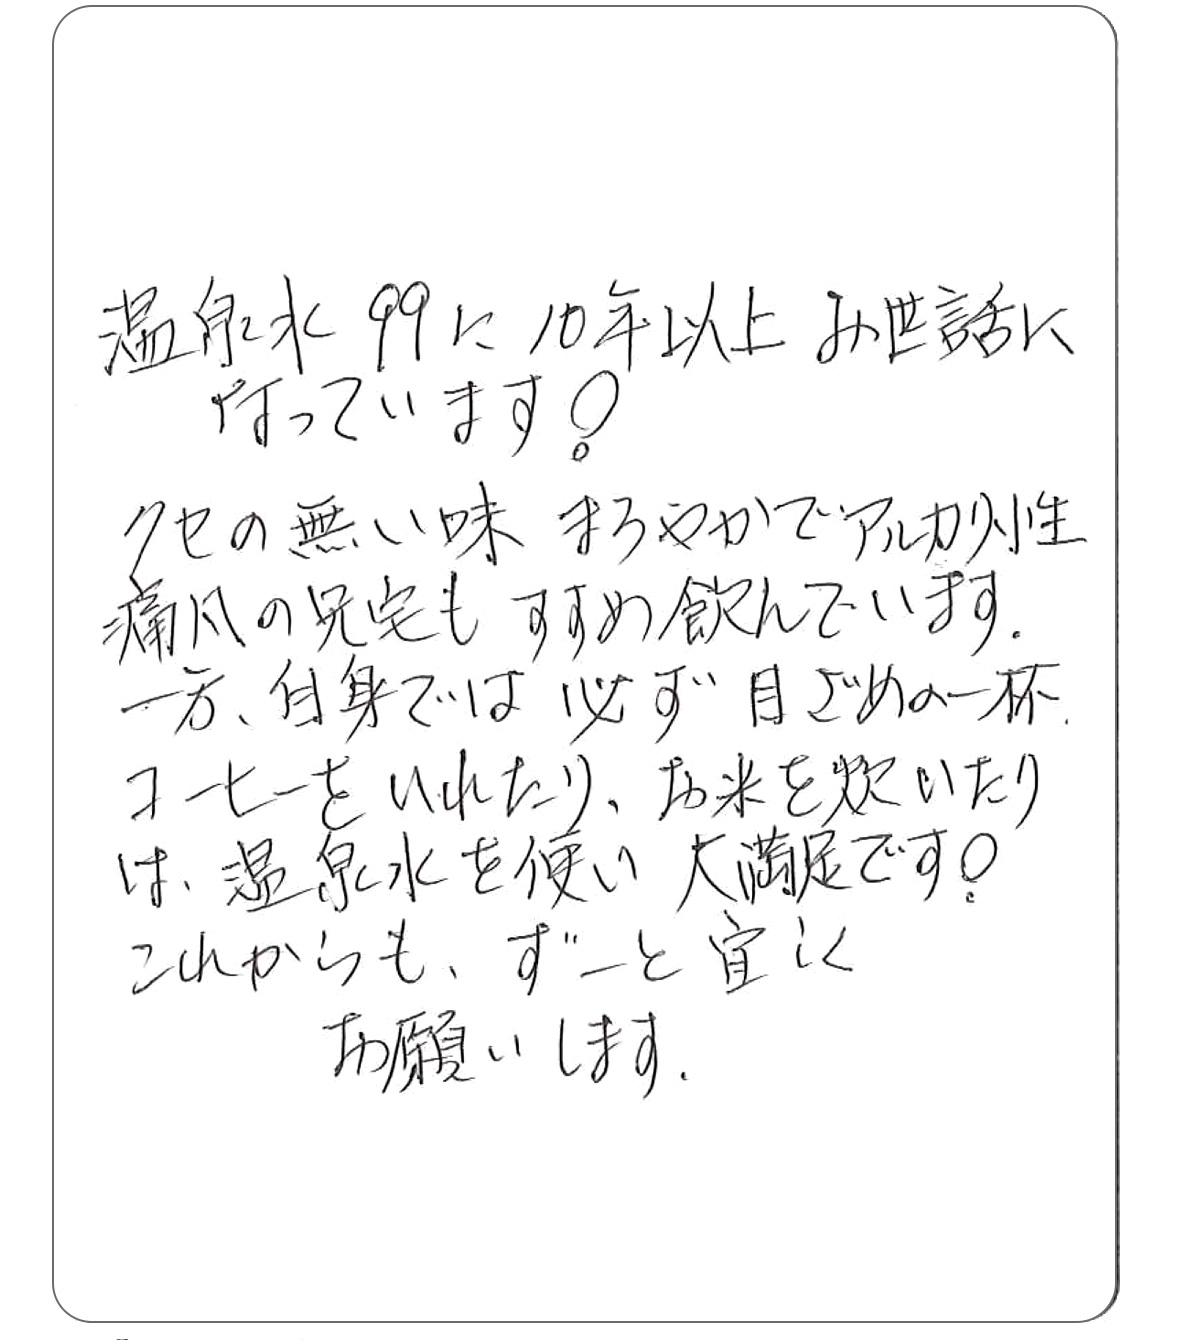 温泉水99に10年以上お世話に
行っています!
クセの無い味 まろやかでアルカリ性
痛風の兄宅もすすめ飲んでいます.
一方、自身では必ず目ざめの一杯.
コーヒーをいれたり、お米を炊いたり
は、温泉水を使い大満足です!
これからも、ずーと宜しく
お願いします.